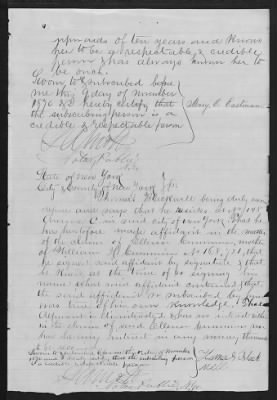 upwards of ten years and knows
her to be a respectable & credible
person & has always known her to
be such.
Sworn to & subscribed before
me this 9 day of November
1870 & I hereby certify that
the subscribing person is a
credible & respectable person
Mary C. Eastman
Notary Public
State of New York
City & County of New York } ss
Thomas Blackwell being duly sworn
says and says that he resides at No 195
and city of New York that he
has heretofore made affidavit in the matter
of the claim of Ellenor Cummins, mother
of William H Cummins No 168,721, that
he signed said affidavit by signature & that
he knew at the time of so signing his
name what said affidavit contained & that
the said affidavit as subscribed by
was of his own knowledge & that
deponent is disinterested & has no interest either
in the claim of said Ellenor Cummins nor
has he any interest in any money thereon
to be received
Sworn to & subscribed before me this day of November
1870 & I certify that the subscribing person
is a credible & respectable person
Thomas Black
well
Notary Public N.Y.